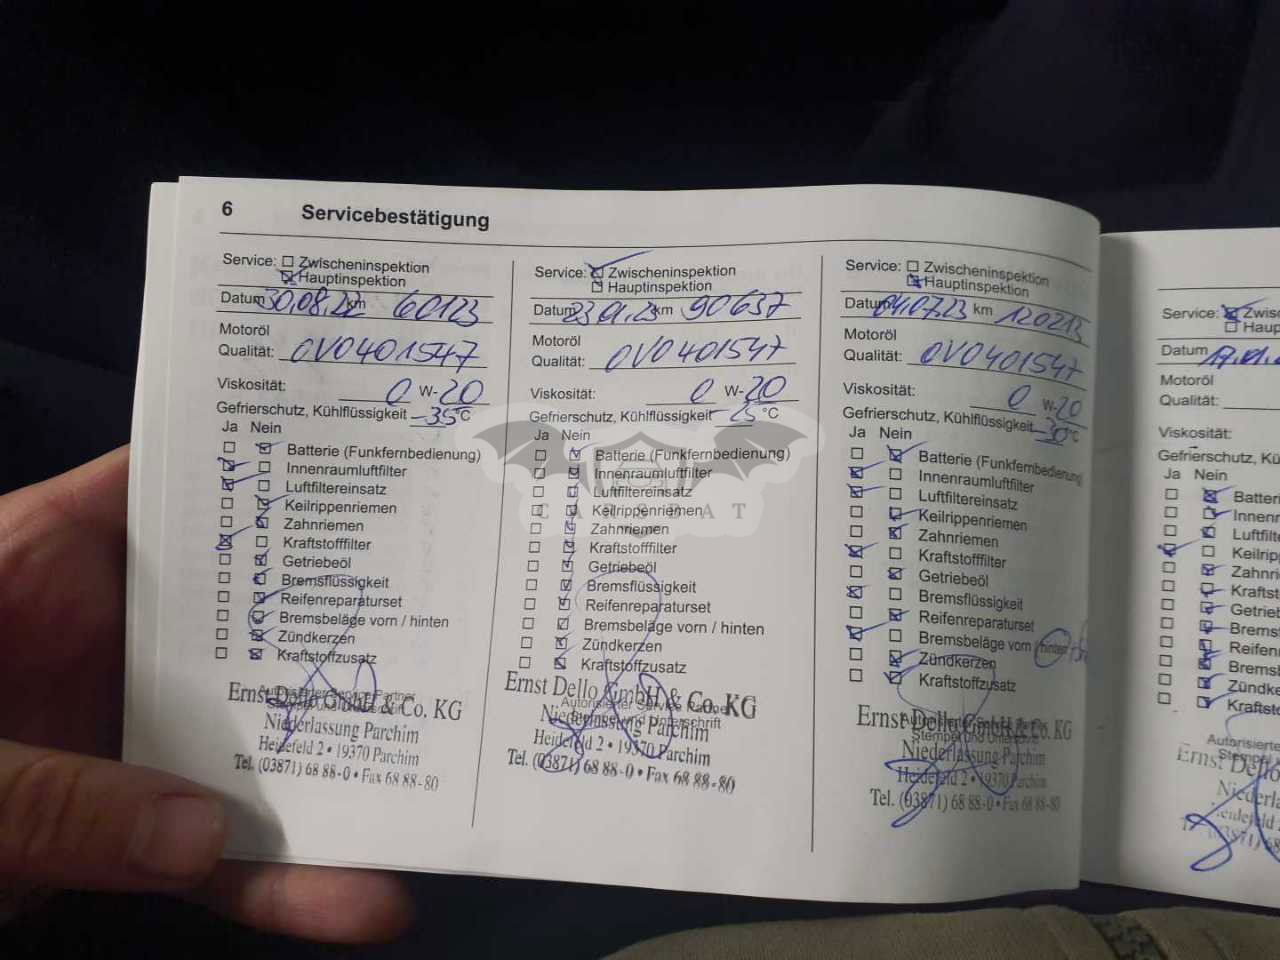 6 Servicebestätigung
Service: Zwischeninspektion
Hauptinspektion
Datum 30.08.22 km 60123
Motoröl
Qualität: OV0401547
Viskosität: 0 W-20
Gefrierschutz, Kühlflüssigkeit -35 °C
Ja Nein
Batterie (Funkfernbedienung)
Innenraumluftfilter
Luftfiltereinsatz
Keilrippenriemen
Zahnriemen
Kraftstofffilter
Getriebeöl
Bremsflüssigkeit
Reifenreparaturset
Bremsbeläge vorn / hinten
Zündkerzen
Kraftstoffzusatz
Autorisierter Service Partner
Ernst Dello GmbH & Co. KG
Niederlassung Parchim
Heidefeld 2 • 19370 Parchim
Tel. (03871) 68 88-0 • Fax 68 88-80
Service: Zwischeninspektion
Hauptinspektion
Datum 23.01.23 km 90637
Motoröl
Qualität: OV0401547
Viskosität: 0 W-20
Gefrierschutz, Kühlflüssigkeit -25 °C
Ja Nein
Batterie (Funkfernbedienung)
Innenraumluftfilter
Luftfiltereinsatz
Keilrippenriemen
Zahnriemen
Kraftstofffilter
Getriebeöl
Bremsflüssigkeit
Reifenreparaturset
Bremsbeläge vorn / hinten
Zündkerzen
Kraftstoffzusatz
Autorisierter Service Partner
Stempel und Unterschrift
Ernst Dello GmbH & Co. KG
Niederlassung Parchim
Heidefeld 2 • 19370 Parchim
Tel. (03871) 68 88-0 • Fax 68 88-80
Service: Zwischeninspektion
Hauptinspektion
Datum 04.07.23 km 120213
Motoröl
Qualität: OV0401547
Viskosität: 0 W-20
Gefrierschutz, Kühlflüssigkeit -30 °C
Ja Nein
Batterie (Funkfernbedienung)
Innenraumluftfilter
Luftfiltereinsatz
Keilrippenriemen
Zahnriemen
Kraftstofffilter
Getriebeöl
Bremsflüssigkeit
Reifenreparaturset
Bremsbeläge vorn / hinten
Zündkerzen
Kraftstoffzusatz
Stempel und Unterschrift
Ernst Dello GmbH & Co. KG
Niederlassung Parchim
Heidefeld 2 • 19370 Parchim
Tel. (03871) 68 88-0 • Fax 68 88-80
Service: Zwisc
Haup
Datum 17.01.
Motoröl
Qualität:
Viskosität:
Gefrierschutz, Kü
Ja Nein
Batter
Innenr
Luftfilte
Keilrip
Zahnri
Kraftst
Getrieb
Bremsf
Reifenr
Bremsb
Zündke
Kraftsto
Autorisierte
Stempel
Ernst Dello
Niederla
CARSBAT